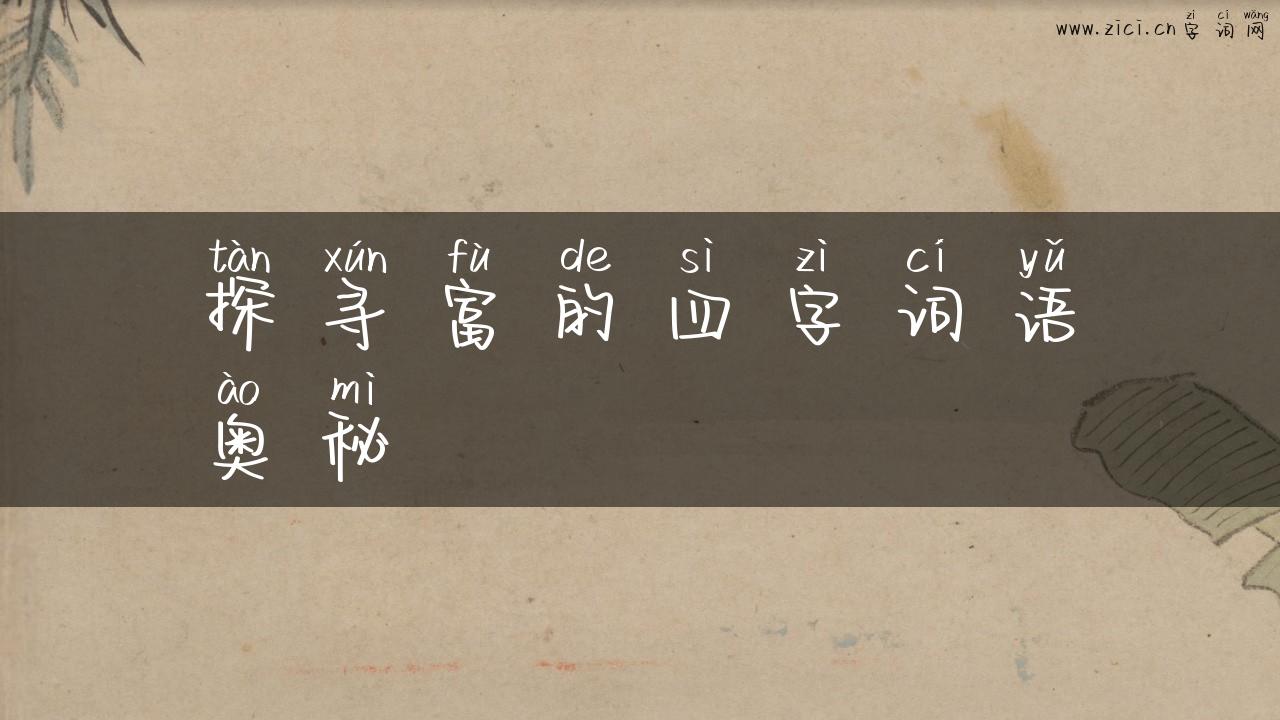 zì cí wǎng
www.zici.cn 字词网
tàn xún fù de sì zì cí yǔ
探寻富的四字词语
ào mì
奥秘